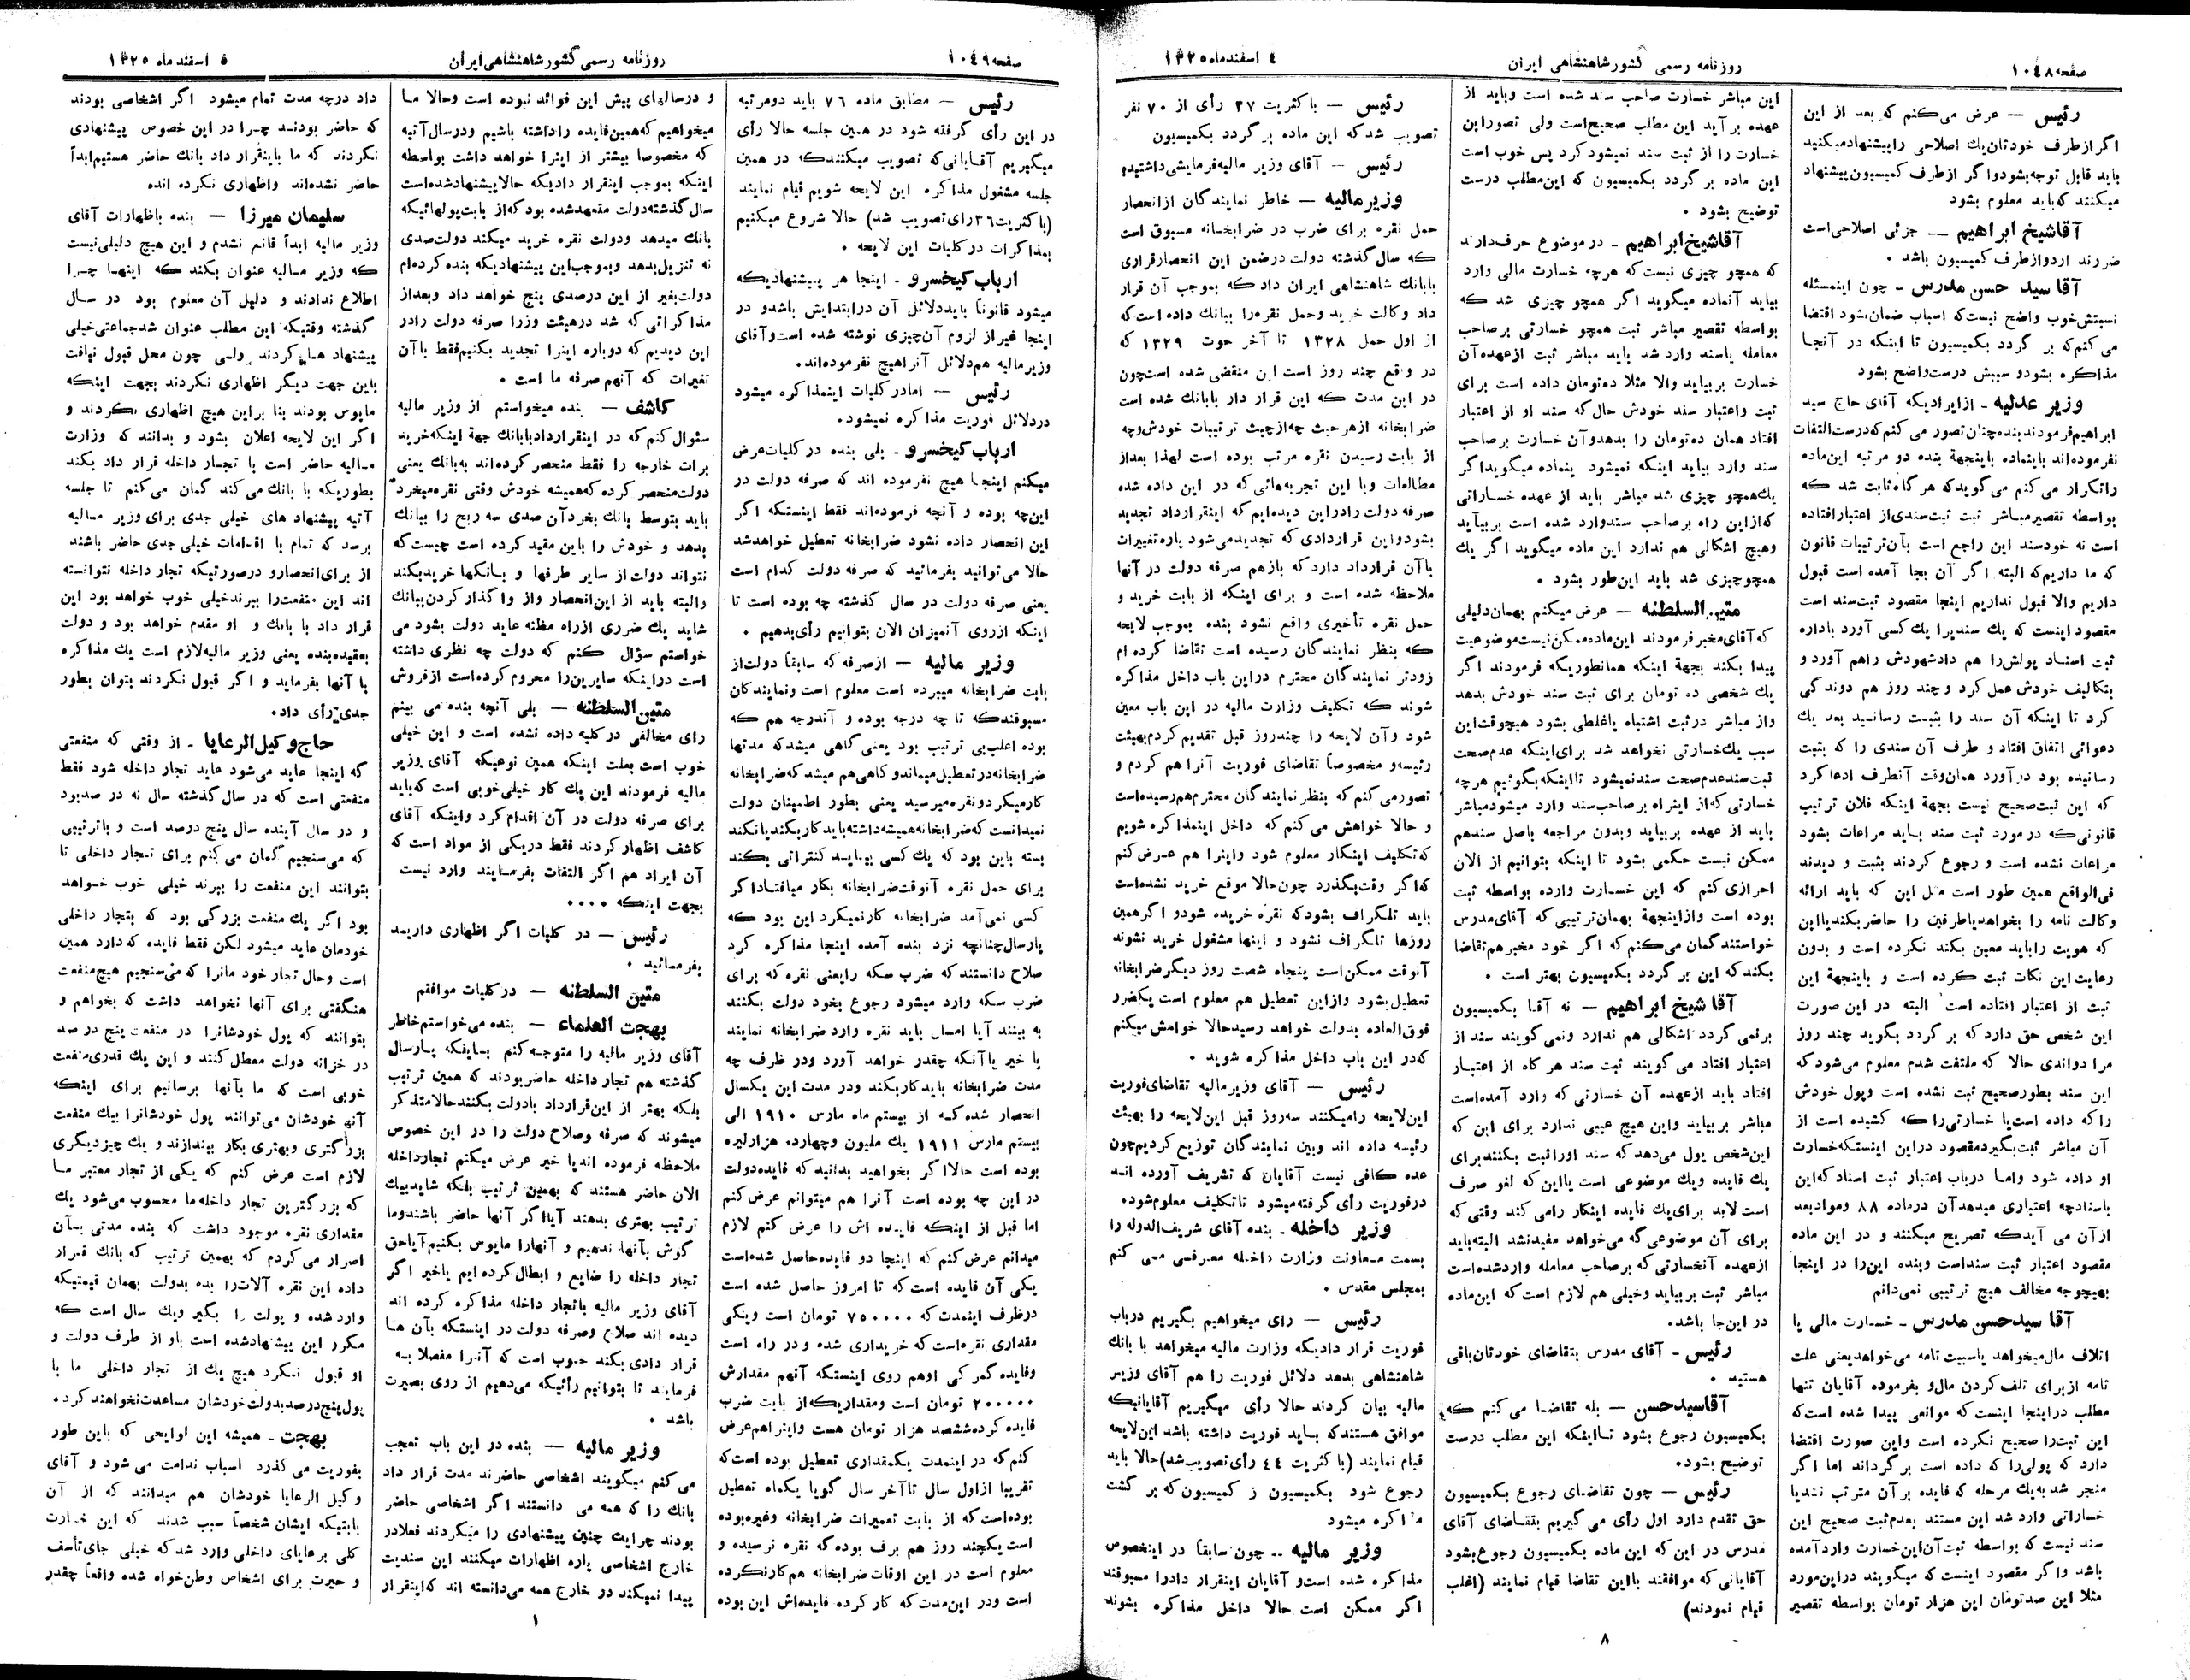 صفحه ۱۰۴۸
روزنامه رسمی کشور شاهنشاهی ایران
٤ اسفند ماه ۱۳۲۵
رئیس — عرض می‌کنم که بعد از این
اگر از طرف خودتان یك اصلاحی را پیشنهاد میکنید
باید قابل توجه بشود و اگر از طرف کمیسیون پیشنهاد
میکنند که باید معلوم بشود
آقا شیخ ابراهیم — جزئی اصلاحی است
ضرر ندارد و از طرف کمیسیون باشد .
آقا سید حسن مدرس - چون اینمسئله
نسبتش خوب واضح نیست که اسباب ضمان بشود اقتضا
می کنم که بر گردد بکمیسیون تا اینکه در آنجا
مذاکره بشود و سببش درست واضح بشود
وزیر عدلیه - از ایرادیکه آقای حاج سید
ابراهیم فرمودند بنده چنان تصور می کنم که درست التفات
نفرموده‌اند باینماده باینجهة بنده دو مرتبه این ماده
را تکرار می کنم می گوید که هر گاه ثابت شد که
بواسطه تقصیر مباشر ثبت ثبت سندی از اعتبار افتاده
است نه خود سند این راجع است بآن ترتیبات قانون
که ما داریم که البته اگر آن بجا آمده است قبول
داریم والا قبول نداریم اینجا مقصود ثبت سند است
مقصود اینست که یك سندیرا یك کسی آورد باداره
ثبت اسناد پولش را هم داد شهودش راهم آورد و
بتکالیف خودش عمل کرد و چند روز هم دوندگی
کرد تا اینکه آن سند را بثبت رسانید بعد یك
دعوائی اتفاق افتاد و طرف آن سندی را که بثبت
رسانیده بود در آورد همان وقت آنطرف ادعا کرد
که این ثبت صحیح نیست بجهة اینکه فلان ترتیب
قانونی که در مورد ثبت سند باید مراعات بشود
مراعات نشده است و رجوع کردند بثبت و دیدند
فی الواقع همین طور است مثل این که باید ارائه
وکالت نامه را بخواهد یا طرفین را حاضر بکند یا این
که هویت را باید معین بکند نکرده است و بدون
رعایت این نکات ثبت کرده است و باینجهة این
ثبت از اعتبار افتاده است البته در این صورت
این شخص حق دارد که بر گردد بگوید چند روز
مرا دواندی حالا که ملتفت شدم معلوم می‌شود که
این سند بطور صحیح ثبت نشده است و پول خودش
را که داده است یا خسارتی را که کشیده است از
آن مباشر ثبت بگیرد مقصود در این اینستکه خسارت
او داده شود واما در باب اعتبار ثبت اسناد که این
باسناد چه اعتباری میدهد آن در ماده ۸۸ و مواد بعد
از آن می آید که تصریح میکنند و در این ماده
مقصود اعتبار ثبت سند است و بنده این را در اینجا
بهیچوجه مخالف هیچ ترتیبی نمی دانم
آقا سید حسن مدرس - خسارت مالی یا
اتلاف مال میخواهد یا سبیت تامه می خواهد یعنی علت
تامه از برای تلف کردن مال و بفرموده آقایان تنها
مطلب در اینجا اینست که موانعی پیدا شده است که
این ثبت را صحیح نکرده است و این صورت اقتضا
دارد که پولی را که داده است بر گرداند اما اگر
منجر شد به یك مرحله که فایده بر آن مترتب نشد یا
خساراتی وارد شد این مستند بعدم ثبت صحیح این
سند نیست که بواسطه ثبت آن این خسارت وارد آمده
باشد و اگر مقصود اینست که میگویند در این مورد
مثلا این صد تومان این هزار تومان بواسطه تقصیر
این مباشر خسارت صاحب سند شده است و باید از
عهده بر آید این مطلب صحیح است ولی تصور این
خسارت را از ثبت سند نمیشود کرد پس خوب است
این ماده بر گردد بکمیسیون که این مطلب درست
توضیح بشود .
آقا شیخ ابراهیم - در موضوع حرف دارند
که همچو چیزی نیست که هرچه خسارت مالی وارد
بیاید آنماده میگوید اگر همچو چیزی شد که
بواسطه تقصیر مباشر ثبت همچو خسارتی بر صاحب
معامله یا سند وارد شد باید مباشر ثبت از عهده آن
خسارت بر بیاید والا مثلا ده تومان داده است برای
ثبت و اعتبار سند خودش حال که سند او از اعتبار
افتاد همان ده تومان را بدهد و آن خسارت بر صاحب
سند وارد بیاید اینکه نمیشود ینماده میگوید اگر
یك همچو چیزی شد مباشر باید از عهده خساراتی
که از این راه بر صاحب سند وارد شده است بر بیآید
وهیچ اشکالی هم ندارد این ماده میگوید اگر یك
همچو چیزی شد باید این طور بشود .
متین السلطنه — عرض میکنم بهمان دلیلی
که آقای مخبر فرمودند این ماده ممکن نیست موضوعیت
پیدا بکند بجهة اینکه همانطوریکه فرمودند اگر
یك شخصی ده تومان برای ثبت سند خودش بدهد
واز مباشر در ثبت اشتباه یا غلطی بشود هیچوقت این
سبب یك خسارتی نخواهد شد برای اینکه عدم صحت
ثبت سند عدم صحت سند نمیشود تا اینکه بگوئیم هر چه
خسارتی که از این راه بر صاحب سند وارد میشود مباشر
باید از عهده بر بیاید و بدون مراجعه باصل سند هم
ممکن نیست حکمی بشود تا اینکه بتوانیم از الان
احرازی کنم که این خسارت وارده بواسطه ثبت
بوده است و از اینجهة بهمان ترتیبی که آقای مدرس
خواستند گمان می‌کنم که اگر خود مخبر هم تقاضا
بکند که این بر گردد بکمیسیون بهتر است .
آقا شیخ ابراهیم — نه آقا بکمیسیون
بر نمی گردد اشکالی هم ندارد و نمی گویند سند از
اعتبار افتاد می گویند ثبت سند هر گاه از اعتبار
افتاد باید از عهده آن خسارتی که وارد آمده است
مباشر بر بیاید و این هیچ عیبی ندارد برای این که
این شخص پول می دهد که سند او را ثبت بکنند برای
یك فایده و یك موضوعی است یا این که لغو صرف
است لابد برای یك فایده اینکار را می کند وقتی که
برای آن موضوعی که می خواهد مفید نشد البته باید
از عهده آنخسارتی که بر صاحب معامله وارد شده است
مباشر ثبت بر بیاید و خیلی هم لازم است که این ماده
در این جا باشد.
رئیس - آقای مدرس بتقاضای خودتان باقی
هستید .
آقا سید حسن — بله تقاضا می کنم که
بکمیسیون رجوع بشود تا اینکه این مطلب درست
توضیح بشود.
رئیس — چون تقاضای رجوع بکمیسیون
حق تقدم دارد اول رأی می گیریم بتقاضای آقای
مدرس در این که این ماده بکمیسیون رجوع بشود
آقایانی که موافقند با این تقاضا قیام نمایند (اغلب
قیام نمودند)
رئیس — با کثریت ۳۷ رأی از ۷۰ نفر
تصویب شد که این ماده بر گردد بکمیسیون
رئیس — آقای وزیر مالیه فرمایشی داشتید؟
وزیر مالیه — خاطر نمایندگان از انحصار
حمل نقره برای ضرب در ضرابخانه مسبوق است
که سال گذشته دولت در ضمن این انحصار قراری
با بانك شاهنشاهی ایران داد که بموجب آن قرار
داد وکالت خرید و حمل نقره را ببانك داده است که
از اول حمل ۱۳۲۸ تا آخر حوت ۱۳۲۹ که
در واقع چند روز است این منقضی شده است چون
در این مدت که این قرار دار با بانك شده است
ضرابخانه از هر حیث چه از حیث ترتیبات خودش و چه
از بابت رسیدن نقره مرتب بوده است لهذا بعد از
مطالعات و با این تجربه هائی که در این داده شده
صرفه دولت را در این دیده ایم که اینقرارداد تجدید
بشود و این قراردادی که تجدید می شود پاره تغییرات
با آن قرارداد دارد که باز هم صرفه دولت در آنها
ملاحظه شده است و برای اینکه از بابت خرید و
حمل نقره تأخیری واقع نشود بنده بموجب لایحه
که بنظر نمایندگان رسیده است تقاضا کرده ام
زودتر نمایندگان محترم در این باب داخل مذاکره
شوند که تکلیف وزارت مالیه در این باب معین
شود و آن لایحه را چند روز قبل تقدیم کردم بهیئت
رئیسه و مخصوصاً تقاضای فوریت آنرا هم کردم و
تصور می کنم که بنظر نمایندگان محترم هم رسیده است
و حالا خواهش می کنم که داخل اینمذاکره شویم
که تکلیف اینکار معلوم شود و اینرا هم عرض کنم
که اگر وقت بگذرد چون حالا موقع خرید نشده است
باید تلگراف بشود که نقره خریده شود و اگر همین
روزها تلگراف نشود و اینها مشغول خرید نشوند
آنوقت ممکن است پنجاه شصت روز دیگر ضرابخانه
تعطیل بشود و از این تعطیل هم معلوم است یکضرر
فوق العاده بدولت خواهد رسید حالا خواهش میکنم
که در این باب داخل مذاکره شوید .
رئیس — آقای وزیر مالیه تقاضای فوریت
این لایحه را میکنند سه روز قبل این لایحه را بهیئت
رئیسه داده اند و بین نمایندگان توزیع کردیم چون
عده کافی نیست آقایان که تشریف آورده اند
در فوریت رأی گرفته میشود تا تکلیف معلوم شود.
وزیر داخله - بنده آقای شریف الدوله را
بسمت معاونت وزارت داخله معرفی می کنم
بمجلس مقدس .
رئیس — رای میخواهیم بگیریم در باب
فوریت قرار دادیکه وزارت مالیه میخواهد با بانك
شاهنشاهی بدهد دلائل فوریت را هم آقای وزیر
مالیه بیان کردند حالا رأی میگیریم آقایانیکه
موافق هستند که باید فوریت داشته باشد این لایحه
قیام نمایند (با کثریت ٤٤ رأی تصویب شد) حالا باید
رجوع شود بکمیسیون ز کمیسیون که بر گشت
مذاکره میشود
وزیر مالیه -- چون سابقاً در اینخصوص
مذاکره شده است و آقایان اینقرار داد را مسبوقند
اگر ممکن است حالا داخل مذاکره بشوند
۸
صفحه ۱۰٤۹
روزنامه رسمی کشور شاهنشاهی ایران
۵ اسفند ماه ۱۳۲۵
رئیس — مطابق ماده ۷۶ باید دو مرتبه
در این رأی گرفته شود در همین جلسه حالا رأی
میگیریم آقایانی که تصویب میکنند که در همین
جلسه مشغول مذاکره این لایحه شویم قیام نمایند
(با کثریت ۳۶ رای تصویب شد) حالا شروع میکنیم
بمذاکرات در کلیات این لایحه .
ارباب کیخسرو - اینجا هر پیشنهادیکه
میشود قانوناً باید دلائل آن در ابتدایش باشد و در
اینجا غیر از لزوم آن چیزی نوشته شده است و آقای
وزیر مالیه هم دلائل آنرا هیچ نفرموده اند.
رئیس — امادر کلیات اینمذاکره میشود
در دلائل فوریت مذاکره نمیشود.
ارباب کیخسرو - بلی بنده در کلیات عرض
میکنم اینجا هیچ نفرموده اند که صرفه دولت در
این چه بوده و آنچه فرموده اند فقط اینستکه اگر
این انحصار داده نشود ضرابخانه تعطیل خواهد شد
حالا می توانید بفرمائید که صرفه دولت کدام است
یعنی صرفه دولت در سال گذشته چه بوده است تا
اینکه از روی آنمیزان الان بتوانیم رأی بدهیم .
وزیر مالیه — از صرفه که سابقاً دولت از
بابت ضرابخانه میبرده است معلوم است و نمایندگان
مسبوقند که تا چه درجه بوده و آندرجه هم که
بوده اغلب بی ترتیب بود یعنی گاهی میشد که مدتها
ضرابخانه در تعطیل میماند و گاهی هم میشد که ضرابخانه
کار میکرد و نقره میرسید یعنی بطور اطمینان دولت
نمیدانست که ضرابخانه همیشه داشته باید کار بکند یا نکند
بسته باین بود که یك کسی بیاید کنتراتی بکند
برای حمل نقره آنوقت ضرابخانه بکار میافتاد اگر
کسی نمی آمد ضرابخانه کار نمیکرد این بود که
پارسال چنانچه نزد بنده آمده اینجا مذاکره کرد
صلاح دانستند که ضرب سکه را یعنی نقره که برای
ضرب سکه وارد میشود رجوع بخود دولت بکنند
به بینند آیا امسال باید نقره وارد ضرابخانه نمایند
یا خیر یا آنکه چقدر خواهد آورد و در ظرف چه
مدت ضرابخانه باید کار بکند و در مدت این یکسال
انحصار شده که از بیستم ماه مارس ۱۹۱۰ الی
بیستم مارس ۱۹۱۱ یك ملیون و چهارده هزار لیره
بوده است حالا اگر بخواهید بدانید که فایده دولت
در این چه بوده است آنرا هم میتوانم عرض کنم
اما قبل از اینکه فایده اش را عرض کنم لازم
میدانم عرض کنم که اینجا دو فایده حاصل شده است
یکی آن فایده است که تا امروز حاصل شده است
در ظرف اینمدت که ۷۵۰۰۰۰ تومان است و یکی
مقداری نقره است که خریداری شده و در راه است
وفایده گمرکی او هم روی اینستکه آنهم مقدارش
۲۰۰۰۰۰ تومان است و مقداریکه از بابت ضرب
فایده کرده ششصد هزار تومان هست و اینرا هم عرض
کنم که در اینمدت یکمقداری تعطیل بوده است که
تقریبا از اول سال تا آخر سال گویا یکماه تعطیل
بوده است که از بابت تعمیرات ضرابخانه و غیره بوده
است یکچند روز هم برف بوده که نقره نرسیده و
معلوم است در این اوقات ضرابخانه هم کار نکرده
است و در این مدت که کار کرده فایده اش این بوده
و در سالهای پیش این فوائد نبوده است و حالا ما
میخواهیم که همین فایده را داشته باشیم و در سال آتیه
که مخصوصا بیشتر از اینرا خواهد داشت بواسطه
اینکه بموجب اینقرار دادیکه حالا پیشنهاد شده است
سال گذشته دولت متعهد شده بود که از بابت پولهائیکه
بانك میدهد و دولت نقره خرید میکند دولت صدی
نه تنزیل بدهد و بموجب این پیشنهادیکه بنده کرده ام
دولت بغیر از این درصدی پنج خواهد داد و بعد از
مذاکراتی که شد در هیئت وزرا صرفه دولت را در
این دیدیم که دوباره اینرا تجدید بکنیم فقط با آن
تغیرات که آنهم صرفه ما است .
کاشف — بنده میخواستم از وزیر مالیه
سئوال کنم که در اینقرارداد با بانك جهة اینکه خرید
برات خارجه را فقط منحصر کرده اند به بانك یعنی
دولت منحصر کرده که همیشه خودش وقتی نقره میخرد
باید بتوسط بانك بخرد آن صدی سه ربح را ببانك
بدهد و خودش را باین مقید کرده است چیست که
نتواند دولت از سایر طرفها و بانکها خرید بکند
والبته باید از این انحصار و از واگذار کردن ببانك
شاید یك ضرری از راه مظنه عاید دولت بشود می
خواستم سؤال کنم که دولت چه نظری داشته
است در اینکه سایرین را محروم کرده است از فروش
متین السلطنه — بلی آنچه بنده می بینم
رای مخالفی در کلیه داده نشده است و این خیلی
خوب است بعلت اینکه همین نوعیکه آقای وزیر
مالیه فرمودند این یك کار خیلی خوبی است که باید
برای صرفه دولت در آن اقدام کرد و اینکه آقای
کاشف اظهار کردند فقط در یکی از مواد است که
آن ایراد هم اگر التفات بفرمایند وارد نیست
بجهت اینکه ....
رئیس — در کلیات اگر اظهاری دارید
بفرمائید .
متین السلطنه — در کلیات موافقم
بهجت العلماء — بنده می خواستم خاطر
آقای وزیر مالیه را متوجه کنم باینکه پارسال
گذشته هم تجار داخله حاضر بودند که همین ترتیب
بلکه بهتر از این قرارداد با دولت بکنند حالا متذکر
میشوند که صرفه و صلاح دولت را در این خصوص
ملاحظه فرموده اند یا خیر عرض میکنم تجار داخله
الان حاضر هستند که بهمین ترتیب بلکه شاید بیك
ترتیب بهتری بدهند آیا اگر آنها حاضر باشند و ما
گوش بآنها ندهیم و آنها را مایوس بکنیم آیا حق
تجار داخله را ضایع و ابطال کرده ایم یا خیر اگر
آقای وزیر مالیه با تجار داخله مذاکره کرده اند
دیده اند صلاح و صرفه دولت در اینستکه بآن ها
قرار دادی بکند خوب است که آنرا مفصلا به
فرمایند تا بتوانیم رأئیکه می دهیم از روی بصیرت
باشد .
وزیر مالیه — بنده در این باب تعجب
می کنم میگویند اشخاصی حاضرند مدت قرار داد
بانك را که همه می دانستند اگر اشخاصی حاضر
بودند چرا یك چنین پیشنهادی را نمیکردند فعلا در
خارج اشخاصی پاره اظهارات میکنند این سندیت
پیدا نمیکند در خارج همه می دانسته اند که اینقرار
داد درچه مدت تمام میشود اگر اشخاصی بودند
که حاضر بودند چرا در این خصوص پیشنهادی
نکردند که ما باینقرار داد بانك حاضر هستیم ابداً
حاضر نشده اند و اظهاری نکرده اند
سلیمان میرزا — بنده باظهارات آقای
وزیر مالیه ابداً قانع نشدم و این هیچ دلیلی نیست
که وزیر مالیه عنوان بکند که اینها چرا
اطلاع ندادند و دلیل آن معلوم بود در سال
گذشته وقتیکه این مطلب عنوان شد جماعتی خیلی
پیشنهاد ها کردند ولی چون محل قبول نیافت
باین جهت دیگر اظهاری نکردند بجهت اینکه
مایوس بودند بنا بر این هیچ اظهاری نکردند و
اگر این لایحه اعلان بشود و بدانند که وزارت
مالیه حاضر است با تجار داخله قرار داد بکند
بطوریکه با بانك می کند گمان می کنم تا جلسه
آتیه پیشنهاد های خیلی جدی برای وزیر مالیه
برسد که تمام با اقدامات خیلی جدی حاضر باشند
از برای انحصار و در صورتیکه تجار داخله نتوانسته
اند این منفعت را ببرند خیلی خوب خواهد بود این
قرار داد با بانك و او مقدم خواهد بود و دولت
بعقیده بنده یعنی وزیر مالیه لازم است یك مذاکره
با آنها بفرماید و اگر قبول نکردند بتوان بطور
جدی رأی داد.
حاج وکیل الرعایا - از وقتی که منفعتی
که اینجا عاید می شود عاید تجار داخله شود فقط
منفعتی است که در سال گذشته سال نه در صد بود
و در سال آینده سال پنج درصد است و با ترتیبی
که می سنجیم گمان می کنم برای تجار داخلی تا
بتوانند این منفعت را ببرند خیلی خوب خواهد
بود اگر یك منفعت بزرگی بود که بتجار داخلی
خودمان عاید میشود لکن فقط فایده که دارد همین
است و حال تجار خود مانرا که می سنجیم هیچ منفعت
هنگفتی برای آنها نخواهد داشت که بخواهم و
بتوانند که پول خودشانرا در منفعت پنج در صد
در خزانه دولت معطل کنند و این یك قدری منفعت
خوبی است که ما بآنها برسانیم برای اینکه
آنها خودشان می توانند پول خودشانرا بیك منفعت
بزرگتری و بهتری بکار بیندازند و یك چیز دیگری
لازم است عرض کنم که یکی از تجار معتبر ما
که بزرگترین تجار داخله ما محسوب می شود یك
مقداری نقره موجود داشت که بنده مدتی بآن
اصرار می کردم که بهمین ترتیب که بانك قرار
داده این نقره آلات را بده بدولت بهمان قیمتیکه
وارد شده و پولت را بگیر و یك سال است که
مکرر این پیشنهاد شده است باو از طرف دولت و
او قبول نمکرد هیچ یك از تجار داخلی ما با
پول پنج در صد بدولت خودشان مساعدت نخواهند کرد.
بهجت - همیشه این لوایحی که باین طور
بفوریت می گذرد اسباب ندامت می شود و آقای
وکیل الرعایا خودشان هم میدانند که از آن
بابتیکه ایشان شخصاً سبب شدند که این خسارت
کلی بر عایای داخلی وارد شد که خیلی جای تأسف
و حیرت برای اشخاص وطن خواه شده واقعاً چقدر
۱